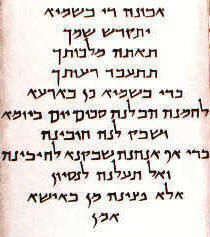 אבונה די בשמיא
יתקדש שמך
תאתה מלכותך
תתעבד רעותך
כדי בשמיא כן בארעא
לחמנה הבלנה סכום יום ביומא
ושבק לנה חובינה
כדי אף אנחנה שבקנא לחיבינה
ואל תעלנה לנסיון
אלא מן באישא
אמן